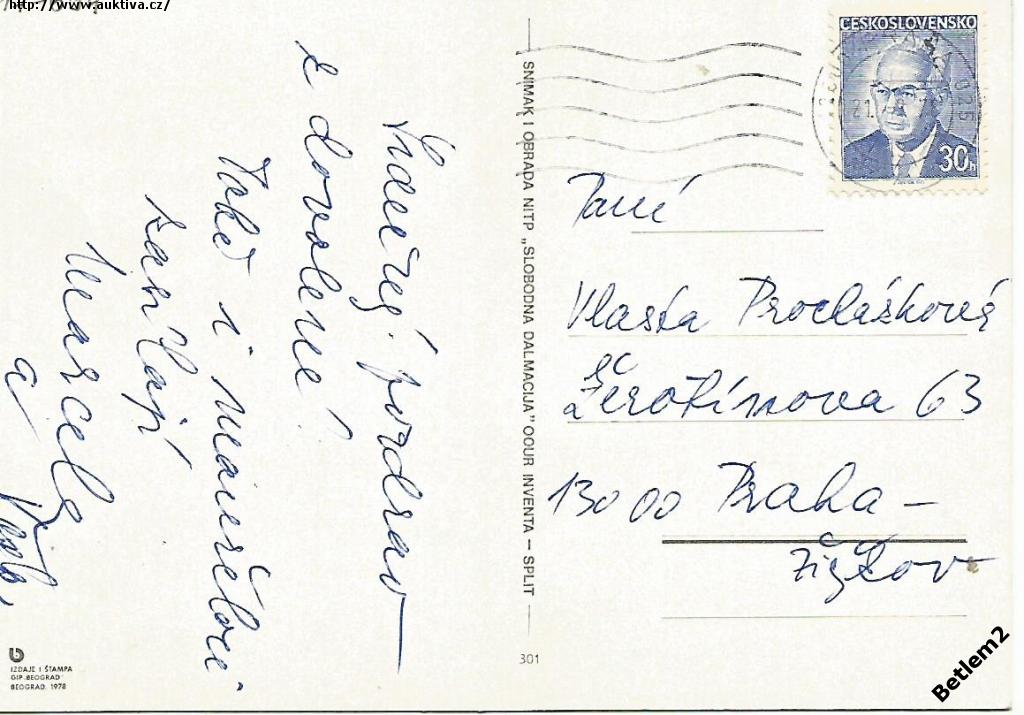 http://www.auktiva.cz/
Srdečný pozdrav
z dovolené!
Také i
zasílají
Marcela
a
IZDAJE I ŠTAMPA
GIP „BEOGRAD"
BEOGRAD, 1978
SNIMAK I OBRADA NITP „SLOBODNA DALMACIJA" OOUR INVENTA – SPLIT
301
ČESKOSLOVENSKO
30h
Paní
Vlasta Procházková
Žerotínova 63
130 00 Praha –
Žižkov
Betlem2